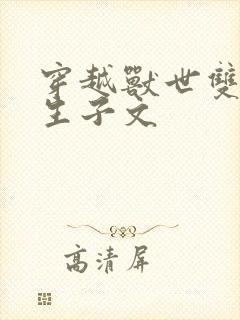 穿越獸世雙
生子文
高清屏